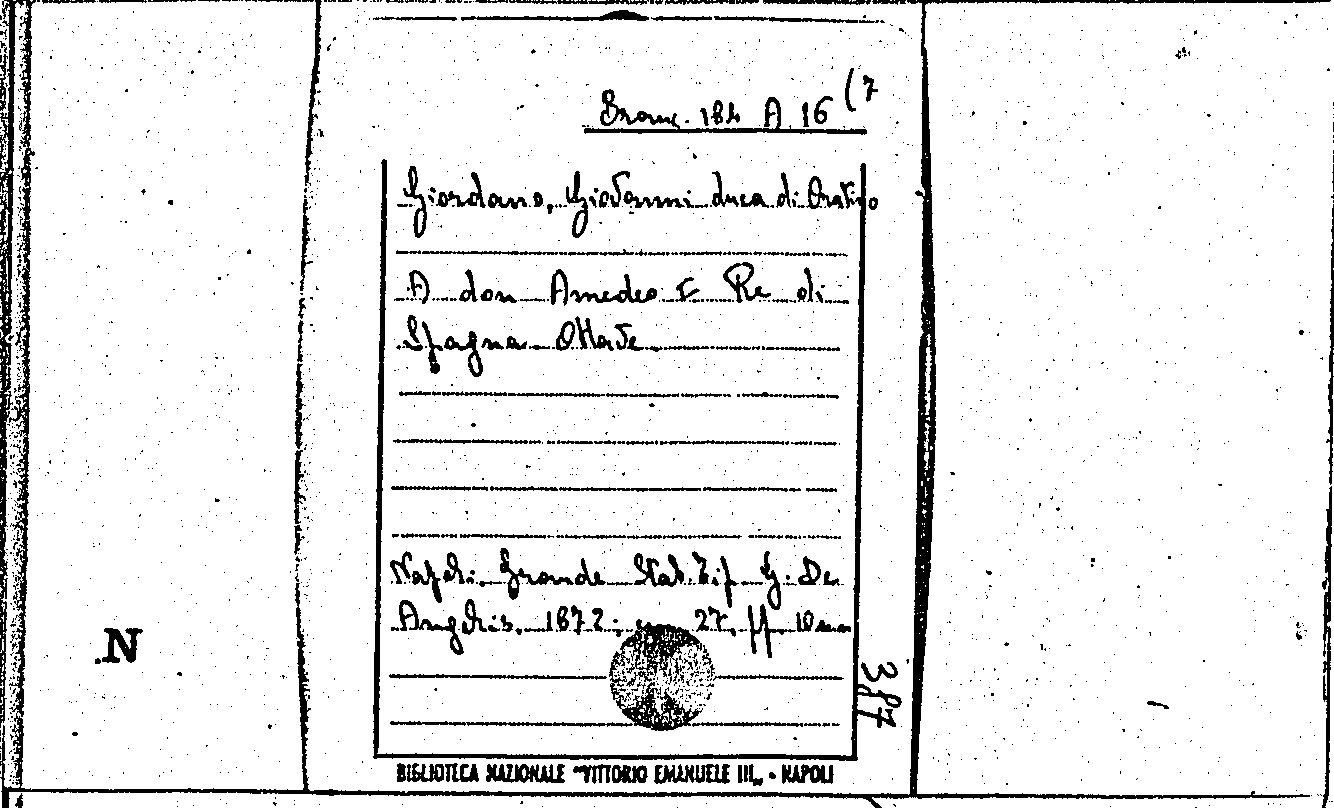 Branc. 184 A 16 (7
Giordano, Giovanni duca di Oratino
A don Amedeo I Re di
Spagna. Ottave.
Napoli. Grande Stab. Tip. G. De
Angelis. 1872; cm. 27, pp. 10
387
.N
BIBLIOTECA NAZIONALE "VITTORIO EMANUELE III„ - NAPOLI